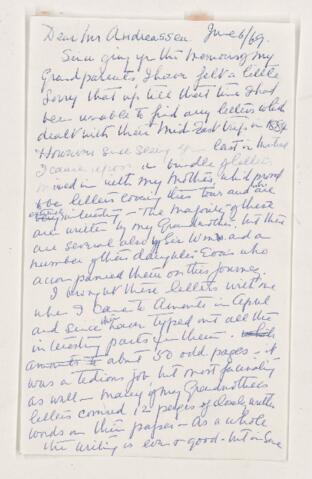 Dear Mr Andreassen June 6/69.
Since giving up the memoirs of my
Grandparents I have felt a little
sorry that up till that time I had
been unable to find any letters which
dealt with their Mid East trip in 1884
However since seeing you last in
I came upon a bundle of letters
mixed in with my Mother's which proved
to be letters covering this tour and are
very interesting - The majority of these
are written by my Grandmother but there
are several also by Sir Wm and a
number of their daughter Eva's who
accompanied them on this journey.
I brought these letters with me
when I came to in April
and since have typed out all the
interesting parts in them.
amounts to about 50 odd pages - it
was a tedious job but most fascinating
as well - many of my Grandmother's
letters covered 12 pages of closely written
words on thin paper - As a whole
the writing is good - but on some